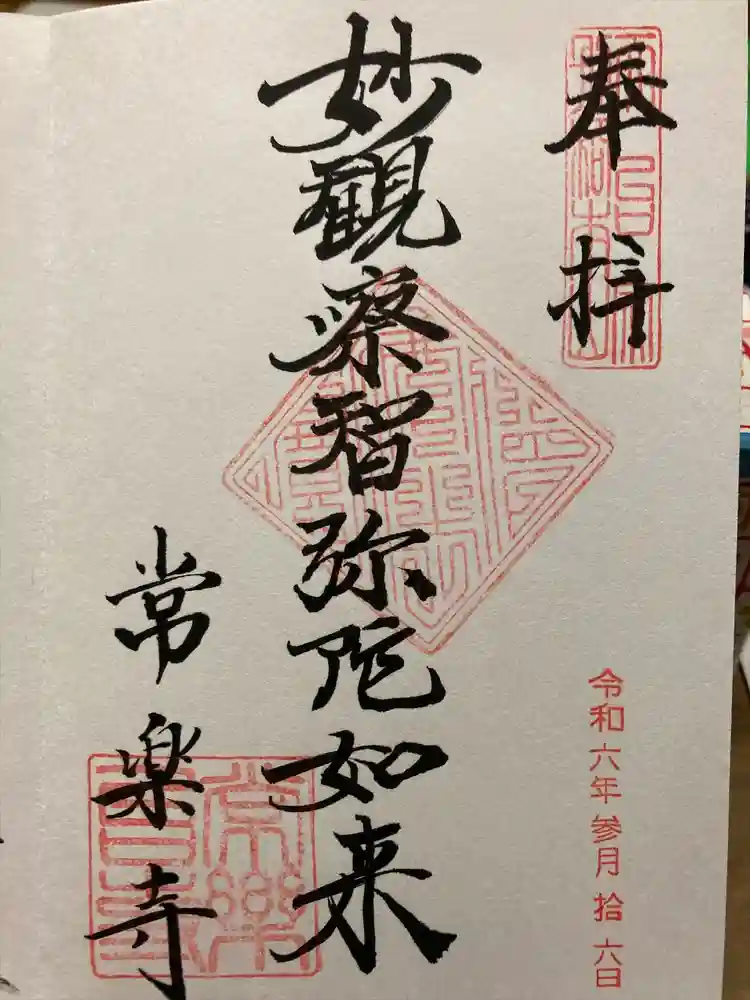 奉拝
妙觀察智弥陀如来
常楽寺
令和六年参月拾六日